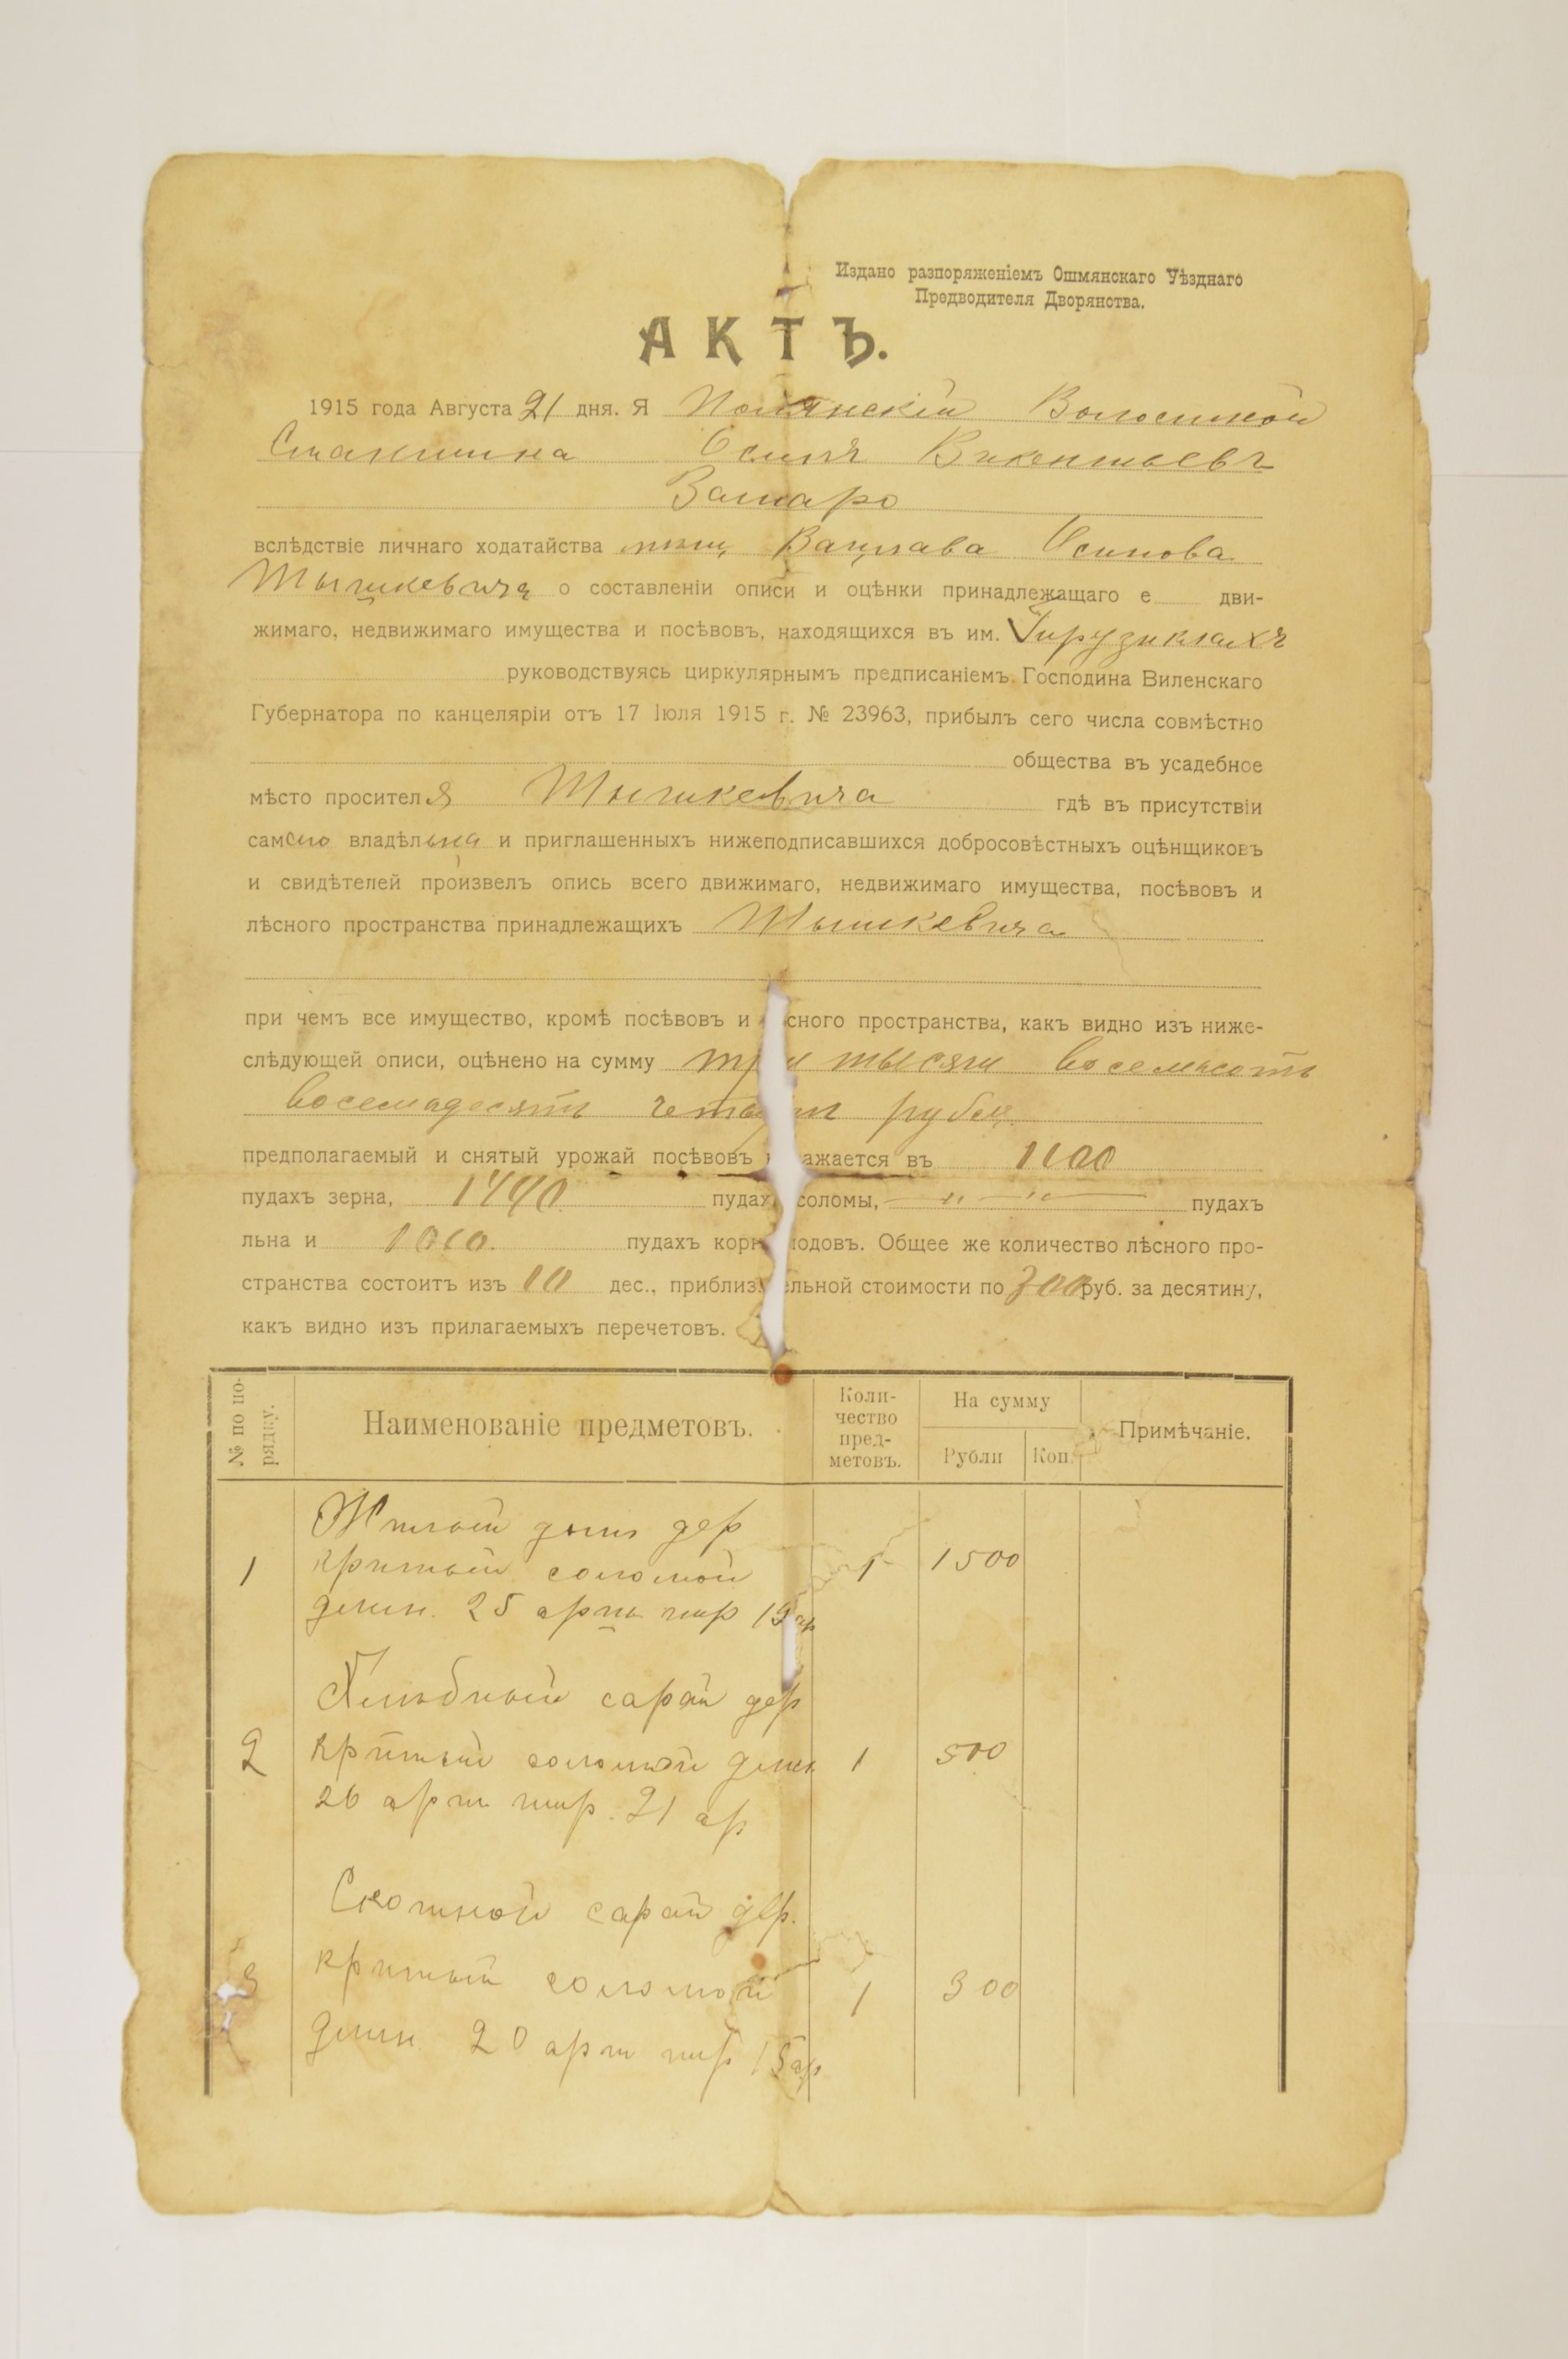 Издано разпоряженіемъ Ошмянскаго Уѣзднаго
Предводителя Дворянства.
АКТЪ.
1915 года Августа 21 дня. Я Полянскій Волостной
Старшина Осипъ Викентьевъ
вслѣдствіе личнаго ходатайства Вацлава Осипова
Тышкевича о составленіи описи и оцѣнки принадлежащаго е дви-
жимаго, недвижимаго имущества и посѣвовъ, находящихся въ им.
руководствуясь циркулярнымъ предписаніемъ Господина Виленскаго
Губернатора по канцеляріи отъ 17 Іюля 1915 г. № 23963, прибылъ сего числа совмѣстно
общества въ усадебное
мѣсто просителя Тышкевича гдѣ въ присутствіи
самого владѣльца и приглашенныхъ нижеподписавшихся добросовѣстныхъ оцѣнщиковъ
и свидѣтелей произвелъ опись всего движимаго, недвижимаго имущества, посѣвовъ и
лѣсного пространства принадлежащихъ Тышкевича
при чемъ все имущество, кромѣ посѣвовъ и сного пространства, какъ видно изъ ниже-
слѣдующей описи, оцѣнено на сумму три тысячи восемьсотъ
восемьдесятъ четыри рубля
предполагаемый и снятый урожай посѣвовъ ажается въ 1100
пудахъ зерна, 1440 пудах соломы, — " — " — пудахъ
льна и 1000. пудахъ корн лодовъ. Общее же количество лѣсного про-
странства состоитъ изъ 10 дес., приблиз ельной стоимости по 300 руб. за десятину,
какъ видно изъ прилагаемыхъ перечетовъ.
№ по по-
рядку.
Наименованіе предметовъ.
Коли-
чество
пред-
метовъ.
На сумму
Рубли
Коп.
Примѣчаніе.
Жилой домъ дер
1 критый соломой 1 1500
длин. 25 арш шир 12 ар
Хлѣбный сарай дер
2 критый соломой длин 1 500
26 арш шир. 21 ар
Скотной сарай дер.
3 критый соломой 1 300
длин 20 арш шир 15 ар